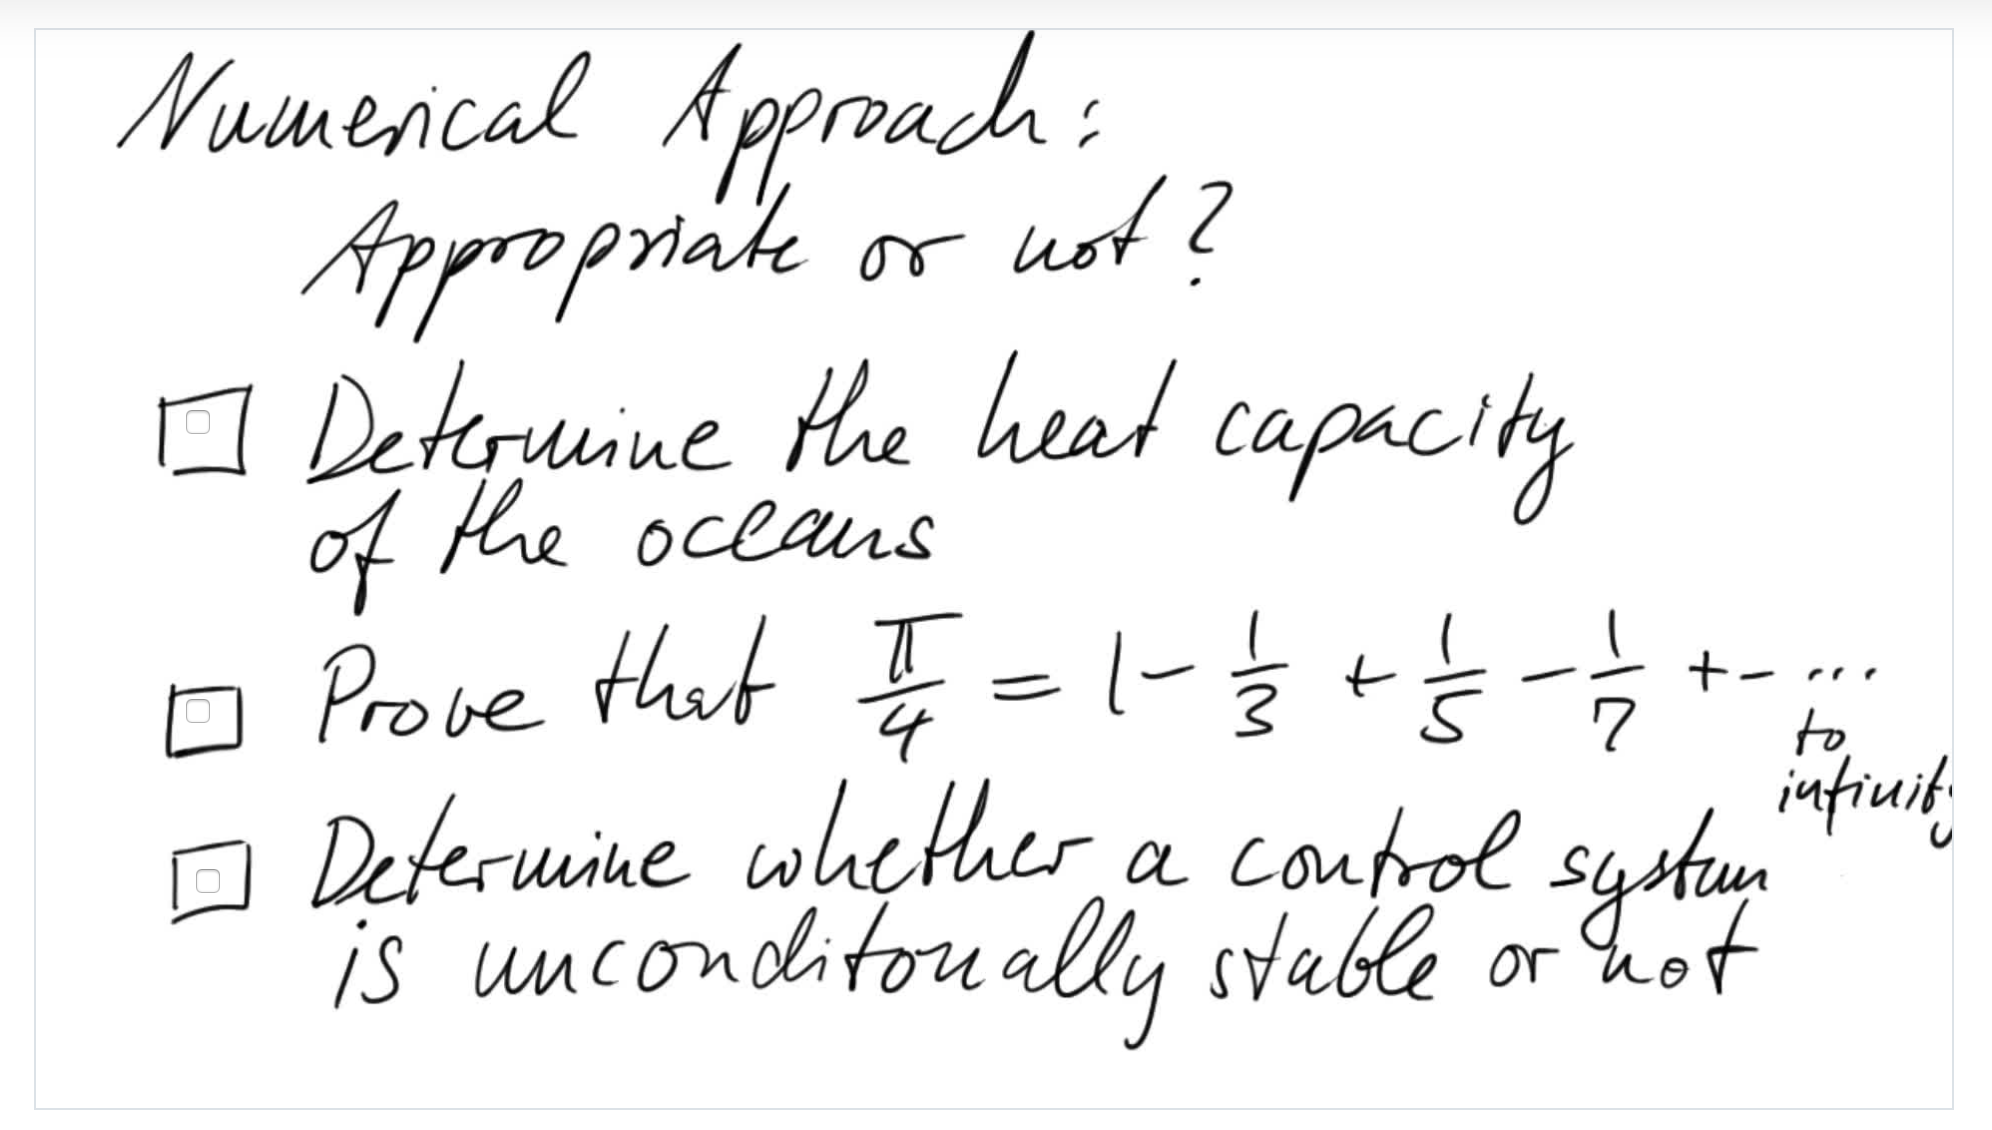 Numerical Approach:
Appropriate or not?
Determine the heat capacity
of the oceans
Prove that π/4 = 1 - 1/3 + 1/5 - 1/7 + - ...
to
infinity
Determine whether a control system
is unconditonally stable or not